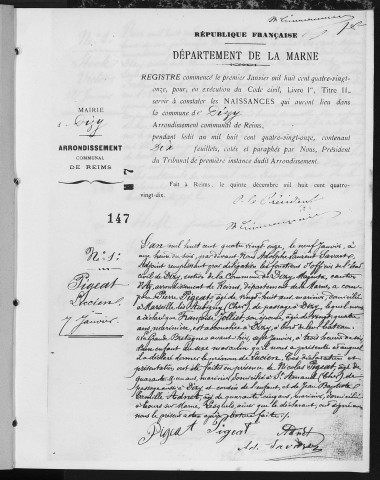 RÉPUBLIQUE FRANÇAISE
DÉPARTEMENT DE LA MARNE
REGISTRE commencé le premier Janvier mil huit cent quatre-vingt-
onze, pour, en exécution du Code civil, Livre Ier, Titre II,
servir à constater les NAISSANCES qui auront lieu dans
la commune de Dizy
Arrondissement communal de Reims,
pendant ledit an mil huit cent quatre-vingt-onze, contenant
dix feuillets, cotés et paraphés par Nous, Président
du Tribunal de première instance dudit Arrondissement.
Fait à Reims, le quinze décembre mil huit cent quatre-
vingt-dix.
Le Président
MAIRIE
Dizy
ARRONDISSEMENT
COMMUNAL
DE REIMS
N 7
147
N° 1:
Pigeat
Lucien
7 Janvier
L'an mil huit cent quatre vingt onze, le neuf Janvier, à
une heure du soir, par devant Nous Adolphe Laurent Savart
adjoint remplissant par délégation les fonctions d'officier de l'état
civil de Dizy, canton d'Ay, arrondissement de Reims, département de la Marne, a com-
paru Pierre Pigeat, âgé de vingt huit ans, marinier, domicilié
à Marseille les Aubigny (Cher), de passage à Dizy, lequel nous
a déclaré que Françoise Jollet son épouse, âgée de vingt quatre
ans, marinière, est accouchée à Dizy, à bord de leur bateau
la Grande Bretagne avant hier, sept Janvier, à trois heures du soir
d'un enfant du sexe masculin qu'il nous a présenté et auquel
il a déclaré donner le prénom de Lucien. Ces déclaration et
présentation ont été faites en présence de Nicolas Pigeat, âgé de
quarante ans, marinier, domicilié à St Amand (Cher), de
passage à Dizy et cousin de l'enfant, et de Jean Baptiste
Camille Hanet, âgé de quarante cinq ans, marinier, domicilié
à Tours sur Marne. Lesquels, ainsi que le déclarant, ont signé avec
nous le présent acte après lecture faite.
Pigeat Pigeat Hanet
Ad. Savart